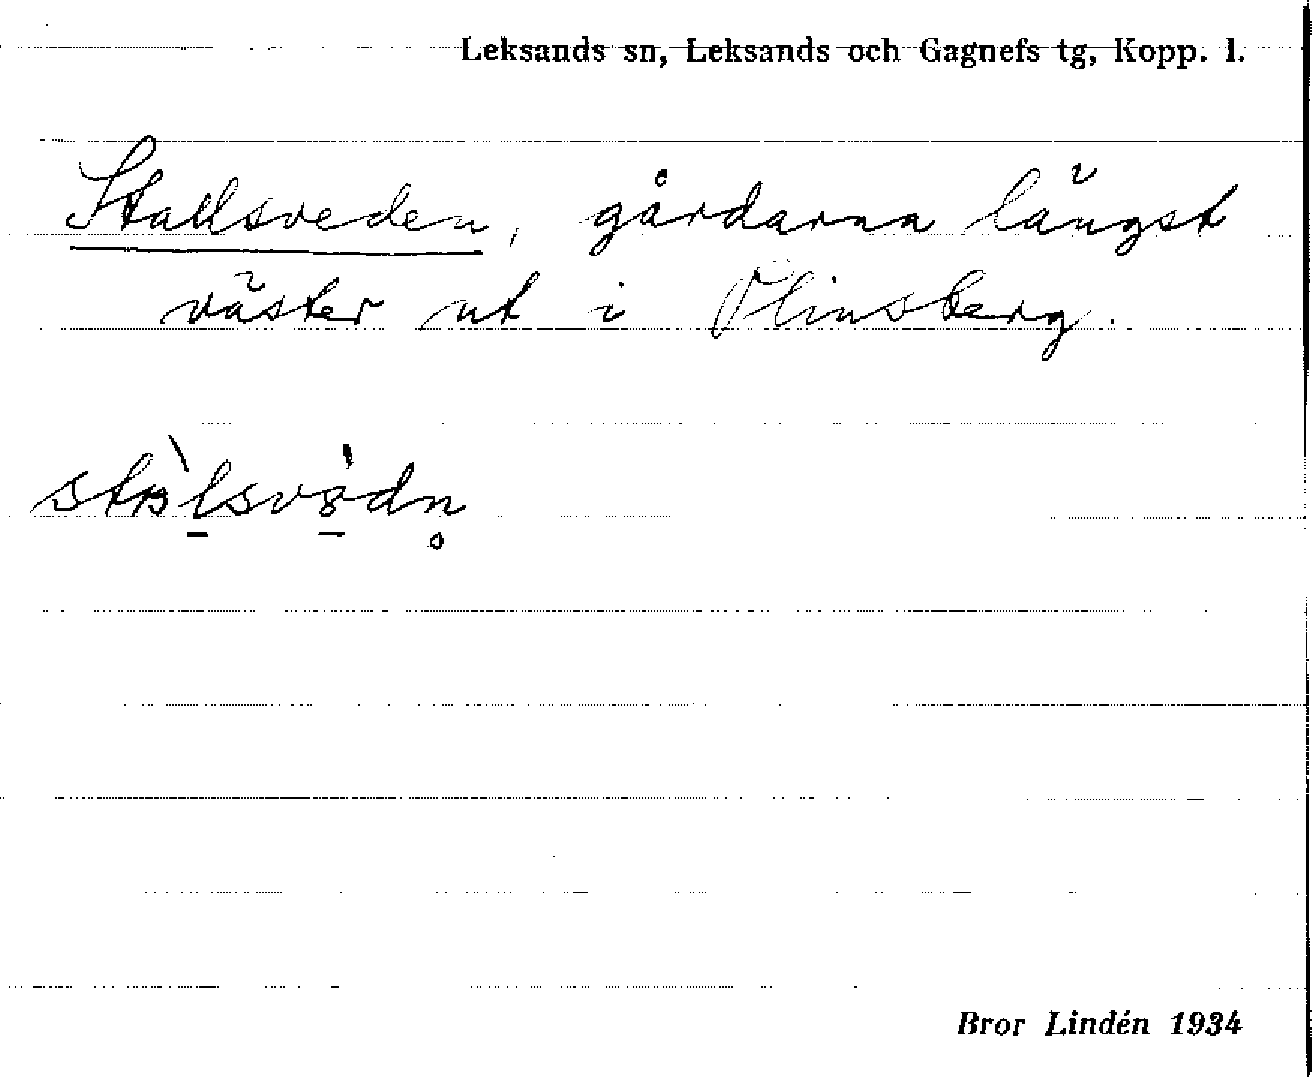 Leksands sn, Leksands och Gagnefs tg, Kopp. l.
Stallsveden, gårdarna längst
väster ut i Olinsberg.
Bror Lindén 1934